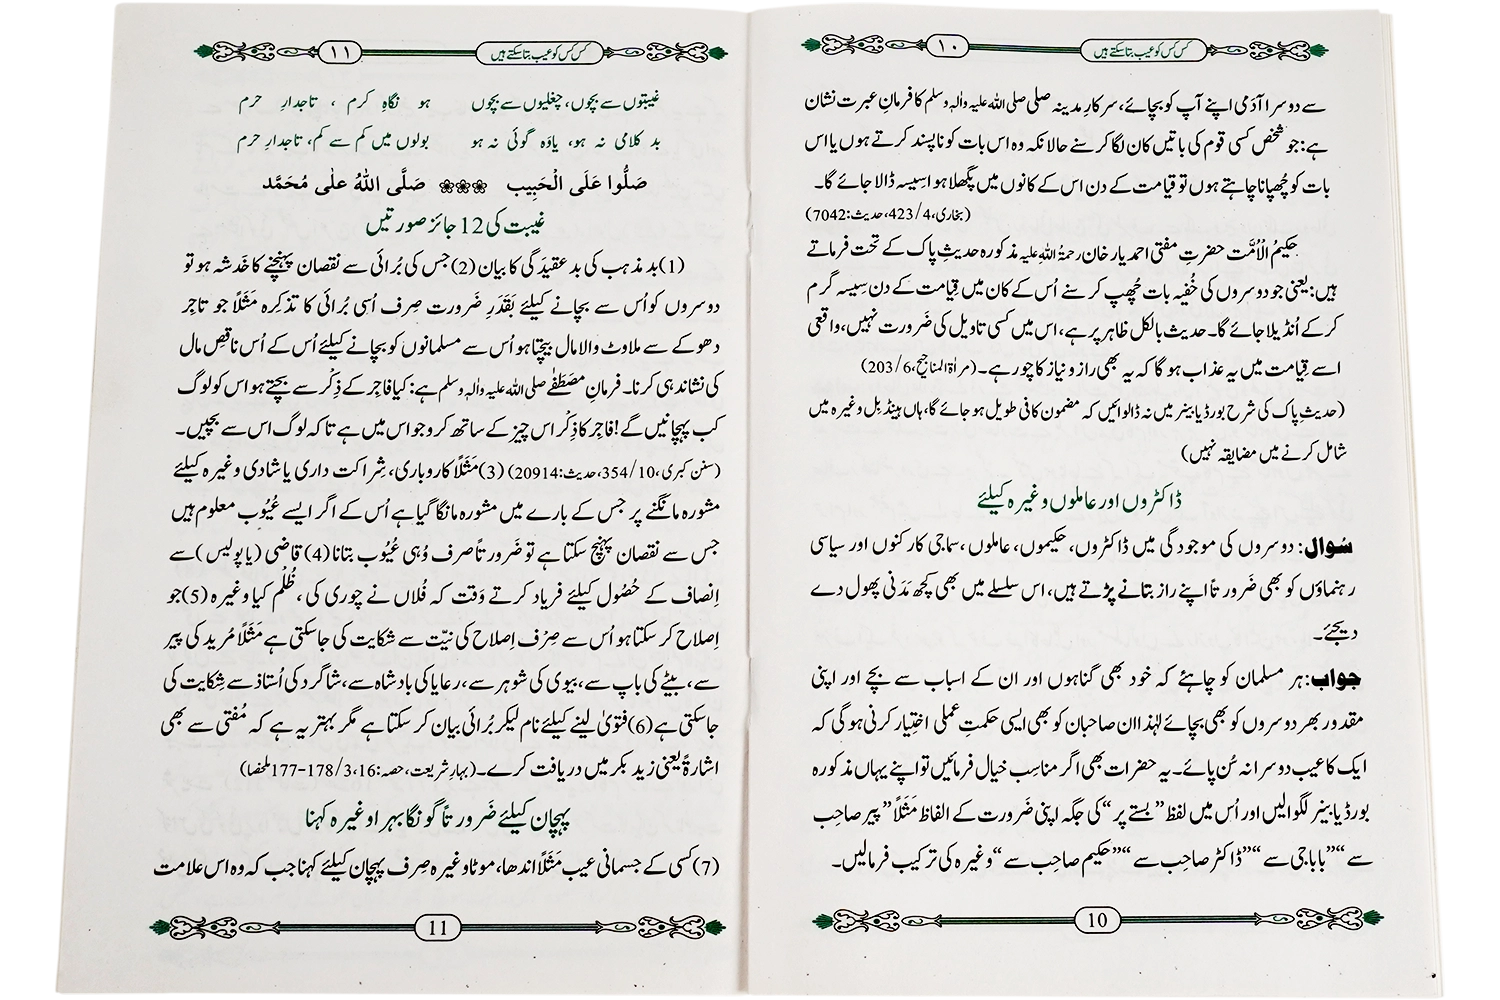 کس کس کو عیب بتا سکتے ہیں
۱۰
سے دوسرا آدمی اپنے آپ کو بچائے، سرکارِ مدینہ صلی صلی اللہ علیہ واٰلہٖ وسلم کا فرمانِ عبرت نشان
ہے: جو شخص کسی قوم کی باتیں کان لگا کر سنے حالانکہ وہ اس بات کو ناپسند کرتے ہوں یا اس
بات کو چُھپانا چاہتے ہوں تو قیامت کے دن اس کے کانوں میں پگھلا ہوا سیسہ ڈالا جائے گا۔
(بخاری، 4/423، حدیث: 7042)
حکیمُ الْاُمَّت حضرتِ مفتی احمد یار خان رحمۃُ اللہِ علیہ مذکورہ حدیثِ پاک کے تحت فرماتے
ہیں: یعنی جو دوسروں کی خُفیہ بات چُھپ کر سنے اُس کے کان میں قِیامت کے دن سِیسہ گرم
کر کے اُنڈیلا جائے گا۔ حدیث بالکل ظاہر پر ہے، اس میں کسی تاویل کی ضَرورت نہیں، واقعی
اسے قِیامت میں یہ عذاب ہو گا کہ یہ بھی راز و نیاز کا چور ہے۔ (مراٰۃ المناجیح، 6/203)
(حدیثِ پاک کی شرح بورڈ یا بینر میں نہ ڈالوائیں کہ مضمون کافی طویل ہو جائے گا، ہاں ہینڈ بِل وغیرہ میں
شامل کرنے میں مضایقہ نہیں)
ڈاکٹروں اور عاملوں وغیرہ کیلئے
سُوال: دوسروں کی موجودگی میں ڈاکٹروں، حکیموں، عاملوں، سماجی کارکنوں اور سیاسی
رہنماؤں کو بھی ضَرورتاً اپنے راز بتانے پڑتے ہیں، اس سلسلے میں بھی کچھ مَدَنی پھول دے
دیجئے۔
جواب: ہر مسلمان کو چاہئے کہ خود بھی گناہوں اور ان کے اسباب سے بچے اور اپنی
مقدور بھر دوسروں کو بھی بچائے لہٰذا ان صاحبان کو بھی ایسی حکمتِ عملی اختیار کرنی ہوگی کہ
ایک کا عیب دوسرا نہ سُن پائے۔ یہ حضرات بھی اگر مناسب خیال فرمائیں تو اپنے یہاں مذکورہ
بورڈ یا بینر لگوالیں اور اُس میں لفظ ”بستے پر“ کی جگہ اپنی ضَرورت کے الفاظ مَثَلاً ”پیر صاحِب
سے“ ”بابا جی سے“ ”ڈاکٹر صاحِب سے“ ”حکیم صاحِب سے“ وغیرہ کی ترکیب فرمالیں۔
10
کس کس کو عیب بتا سکتے ہیں
۱۱
غیبتوں سے بچوں، چغلیوں سے بچوں ہو نگاہِ کرم ، تاجدارِ حرم
بد کلامی نہ ہو، یاوَہ گوئی نہ ہو بولوں میں کم سے کم، تاجدارِ حرم
صَلُّوا عَلَى الْحَبِيب صَلَّى اللهُ عَلٰى مُحَمَّد
غیبت کی 12 جائز صورتیں
(1) بد مذہب کی بد عقیدگی کا بیان (2) جس کی بُرائی سے نقصان پہنچنے کا خَدشہ ہو تو
دوسروں کو اُس سے بچانے کیلئے بقَدَرِ ضَرورت صِرف اُسی بُرائی کا تذکِرہ مَثَلاً جو تاجِر
دھوکے سے ملاوٹ والا مال بیچتا ہو اُس سے مسلمانوں کو بچانے کیلئے اُس کے اُس ناقِص مال
کی نشاندہی کرنا۔ فرمانِ مصَطفٰے صلی اللہ علیہ واٰلہٖ وسلم ہے: کیا فاجر کے ذِکْر سے بچتے ہو اس کو لوگ
کب پہچانیں گے! فاجِر کا ذِکْر اس چیز کے ساتھ کرو جو اس میں ہے تاکہ لوگ اس سے بچیں۔
(سنن کبری، 10/354، حدیث: 20914) (3) مَثَلاً کاروباری، شِراکت داری یا شادی وغیرہ کیلئے
مشورہ مانگنے پر جس کے بارے میں مشورہ مانگا گیا ہے اُس کے اگر ایسے عُیُوب معلوم ہیں
جس سے نقصان پہنچ سکتا ہے تو ضَرورتاً صرف وُہی عُیُوب بتانا (4) قاضی (یا پولیس) سے
اِنصاف کے حُصُول کیلئے فریاد کرتے وَقت کہ فُلاں نے چوری کی ، ظُلْم کیا وغیرہ (5) جو
اِصلاح کر سکتا ہو اُس سے صِرْف اِصلاح کی نیّت سے شکایت کی جاسکتی ہے مَثَلاً مُرید کی پیر
سے، بیٹے کی باپ سے، بیوی کی شوہر سے، رعایا کی بادشاہ سے، شاگرد کی اُستاذ سے شِکایت کی
جاسکتی ہے (6) فتویٰ لینے کیلئے نام لیکر بُرائی بیان کر سکتا ہے مگر بہتر یہ ہے کہ مُفتی سے بھی
اشارۃً یعنی زید بکر میں دریافت کرے۔ (بہارِ شریعت، حصہ: 16، 3/177-178 ملخصا)
پہچان کیلئے ضَرورتاً گونگا بہرا وغیرہ کہنا
(7) کسی کے جسمانی عیب مَثَلاً اندھا، موٹا وغیرہ صِرف پہچان کیلئے کہنا جب کہ وہ اس علامت
11